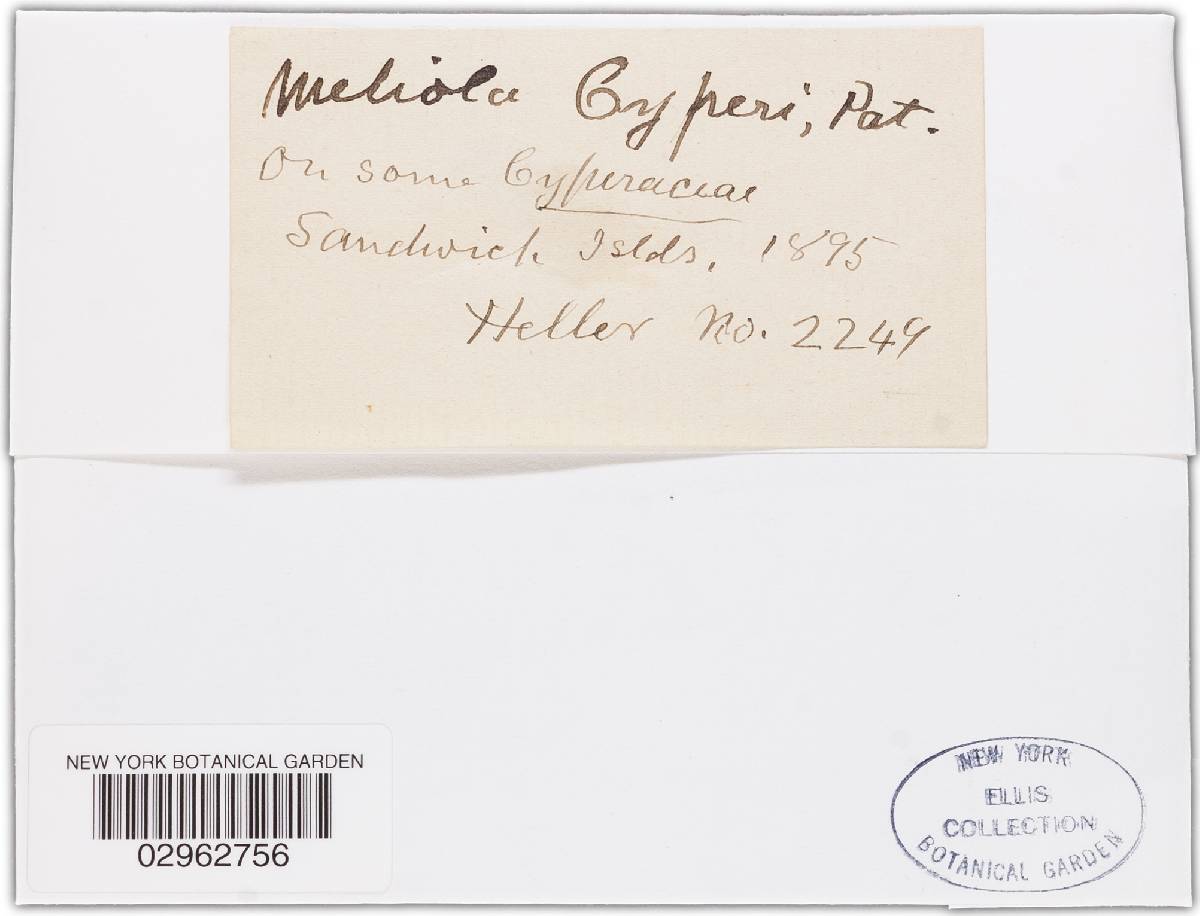 Meliola Cyperi, Pat.
On some Cyperaceae
Sandwich Islds, 1895
Heller No. 2249
NEW YORK BOTANICAL GARDEN
02962756
NEW YORK
ELLIS
COLLECTION
BOTANICAL GARDEN